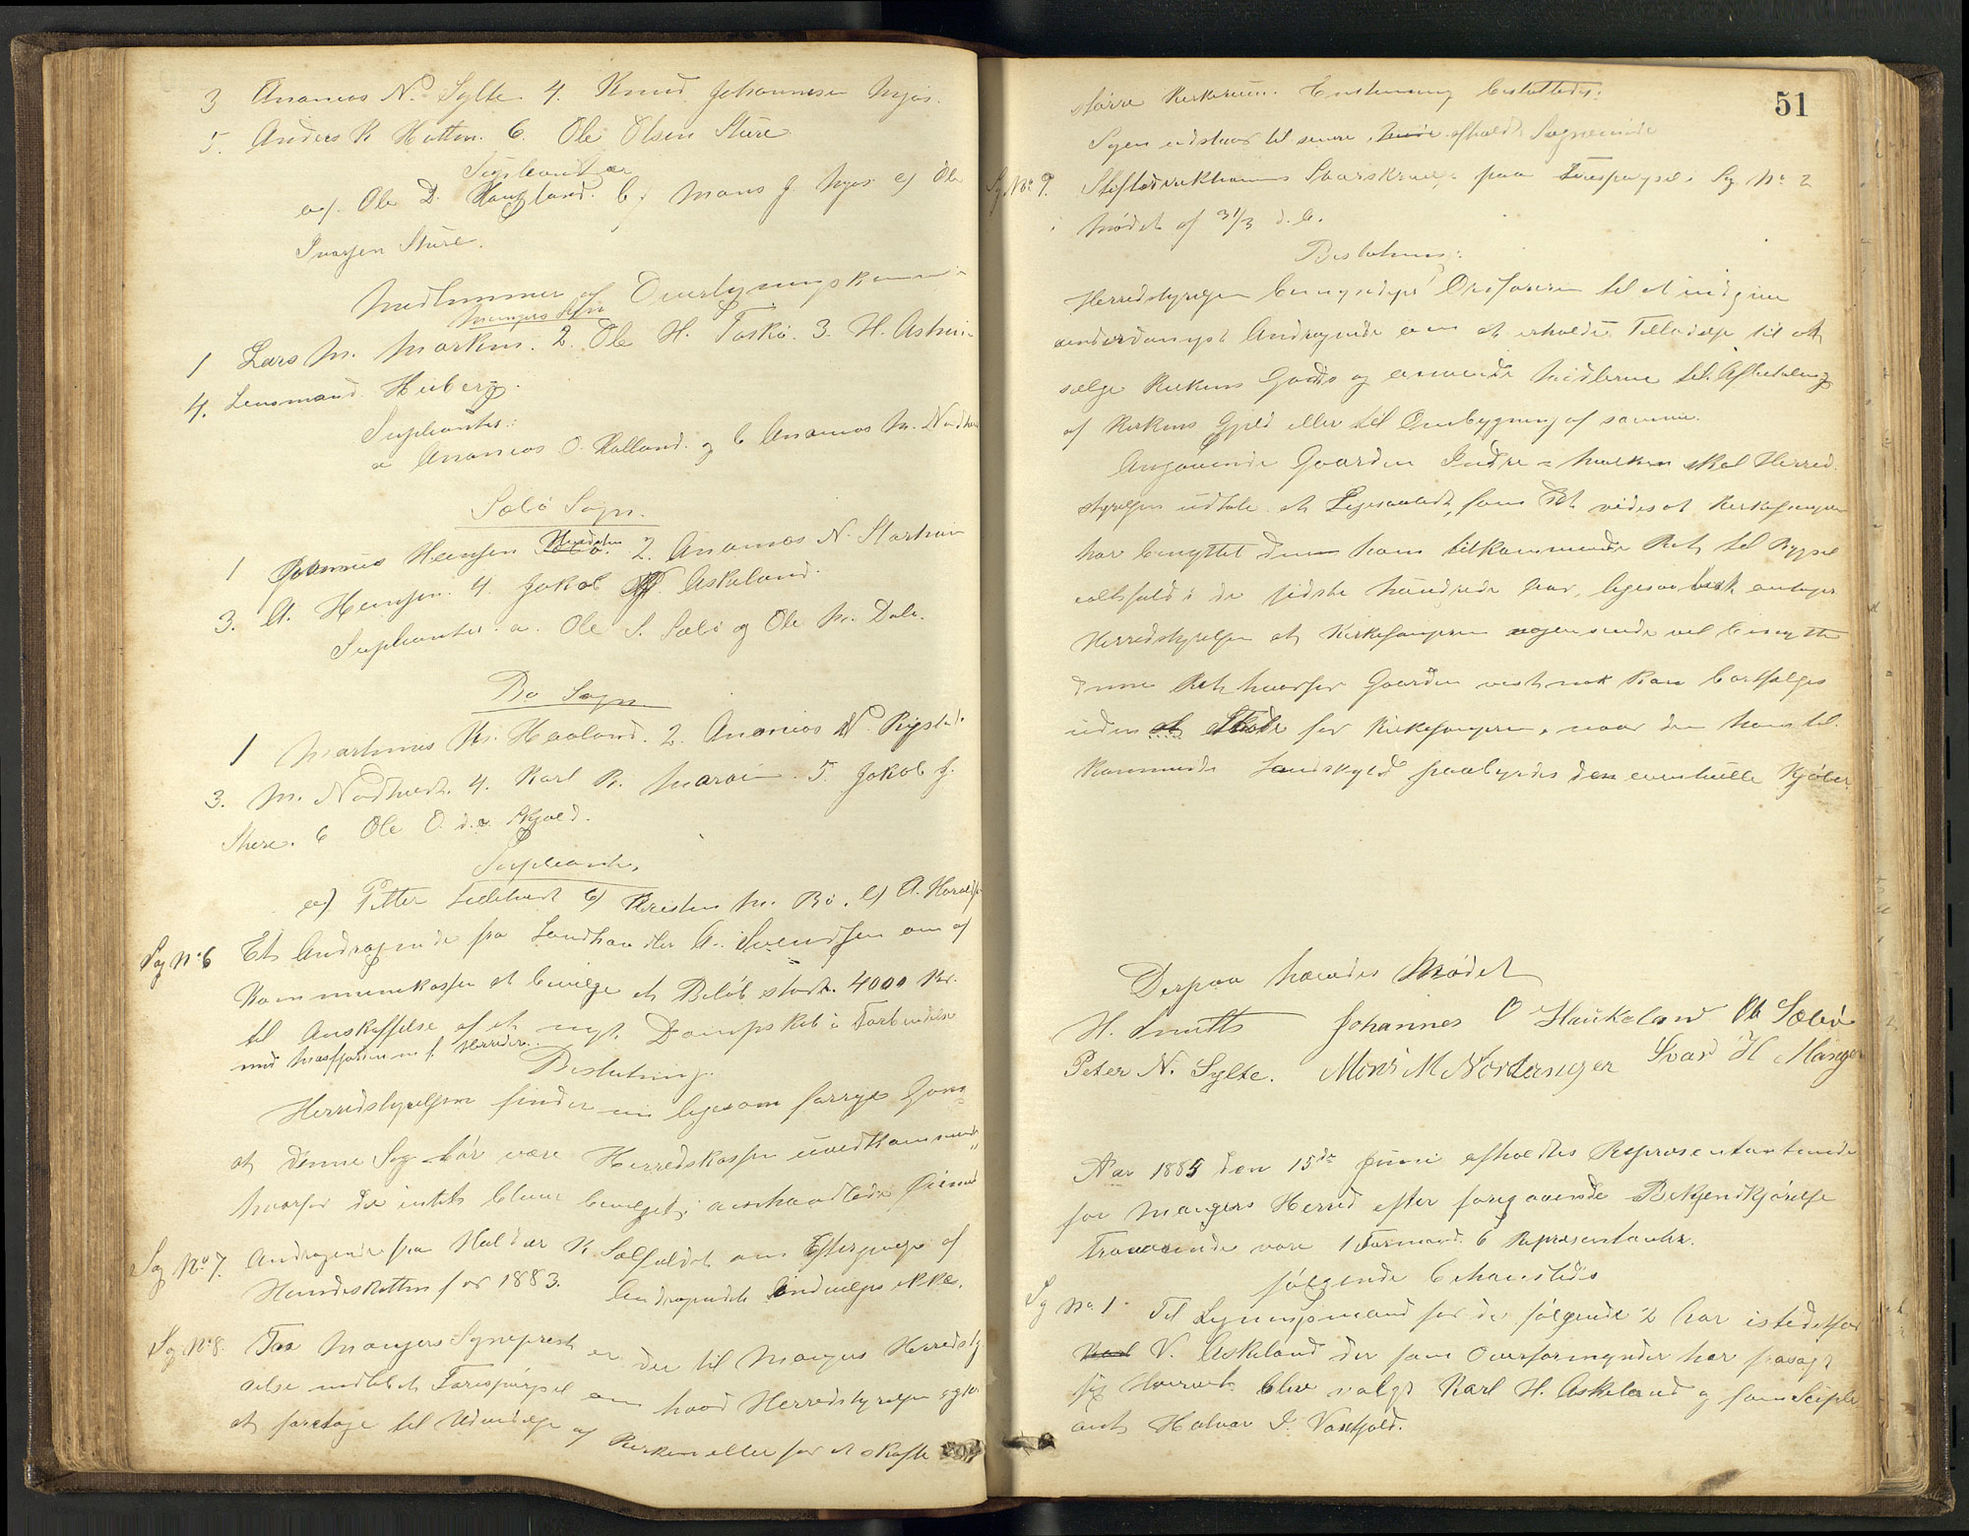 3 Ananias N. Sylte 4. Knud Johannesen Njøs.
5. Anders K Hatten. 6. Ole Olsen Sture
Supleanter
a). Ole D. Haugland. b) Mons J. Njøs c) Ole
Ivarsen Sture.
Medlemmer af Overligningskommis
Mangers Sogn
1 Lars M. Marken. 2. Ole H. Toskø. 3. H. Astvei
4. Lensmand Heiberg.
Supleanter:
a Ananias O. Halland. og b Ananias M.
Sæbø Sogn.
1 Johannes Hansen 2. Ananias N. Storheim
3. A. Hansen. 4. Jakob Askeland.
Supleanter. a. Ole S. Sæbø og Ole M. Dale.
Bø Sogn
1 Martinus K. Haaland. 2. Ananias N. Rigstad
3. M. Nødtvedt. 4. Karl R. Marøen. 5. Jakob J.
Sture. 6 Ole O. d.æ. Skjold.
Supleanter,
a) Petter b) Kristen M. Bø. c) A.
Sag No 6 Et Andragende fra Landhandler A. Svendsen om af
Kommunekassen at bevilge et Beløb stort. 4000 Kr.
til Anskaffelse af et nyt Dampskib i Forbindelse
med Masfjorden m. fl. Herreder.
Beslutning.
Herredstyrelsen finder nu ligesom forrige Gang
at denne Sag bør være Herredskassen uvedkommende
hvorfor der intet blev bevilget,
Sag No 7. Andragende fra Haldor K. om Eftergivelse af
Hundeskatten for 1883. Andragendet indvilges ikke.
Sag No 8. Fra Mangers Sogneprest er der til Mangers Herredsty
relse indløbet Forespørgsel om hvad Herredstyrelsen agter
at foretage til Udvidelse af Kirken eller for at skaffe
51
større Kirkerum. Enstemmig besluttedes:
Sagen udstaar til senere afholdt Sognemøde
Sag No 9. Stiftsdirektionens Svarskrivelse paa Forespørgsel i Sag No 2
i Mødet af 31/3 d. A.
Beslutning:
Herredstyrelsen bemyndiger Ordføreren til at indgive
underdanigst Andragende om at erholde Tilladelse til at
sælge Kirkens Gods og anvende Midlerne til Afbetaling
af Kirkens Gjeld eller til Ombygning af samme.
Angaaende Gaarden Indre-Marken skal Herred
styrelsen udtale at Ligesaalidt, som det vides at Kirkesangeren
har benyttet den ham tilkommende Ret til Bygsel
ialtfald i de sidste hundrede Aar, ligesaa lidt antager
Herredstyrelsen at Kirkesangeren nogensinde vil benytte
denne Ret hvorfor Gaarden vistnok kan bortsælges
uden Skade for Kirkesangeren, naar den ham til
kommende Landskyld paabyrdes den eventuelle Kjøber.
Derpaa hævedes Mødet
H. Smitt Johannes O Haukeland Ole Sæbø
Peter N. Sylte. Mons M Nordanger Ivar H Manger
Aar 1885 den 15de Juni afholdtes Representantmøde
for Mangers Herred efter foregaaende Bekjendtgjørelse
Fraværende vare 1 Formand 6 Representanter.
følgende behandledes
Sag No 1. Til Ligningsmand for de følgende 2 Aar istedetfor
V. Askeland der som Overformynder har frasagt
sig Hvervet blev valgt Karl H. Askeland og som Suple
ant Halvor I.